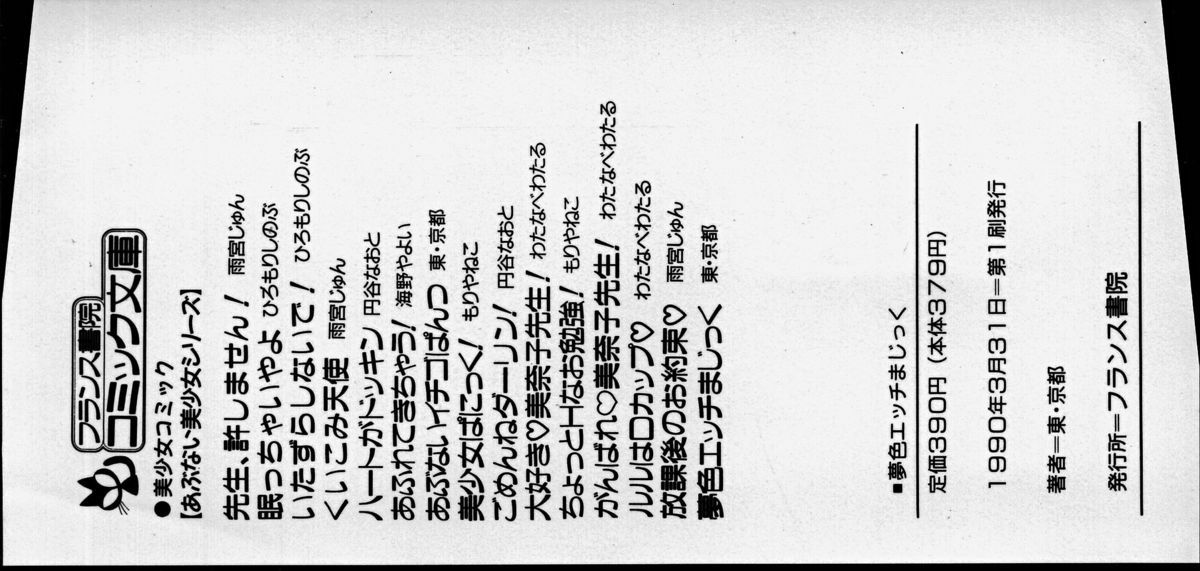 フランス書院
コミック文庫
●美少女コミック
【あぶない美少女シリーズ】
先生、許しません! 雨宮じゅん
眠っちゃいやよ ひろもりしのぶ
いたずらしないで! ひろもりしのぶ
くいこみ天使 雨宮じゅん
ハートがドッキン 円谷なおと
あふれてきちゃう! 海野やよい
あぶないイチゴぱんつ 東・京都
美少女ぱにっく! もりやねこ
ごめんねダーリン! 円谷なおと
大好き♡美奈子先生! わたなべわたる
ちょっとHなお勉強! もりやねこ
がんばれ♡美奈子先生! わたなべわたる
ルルルはロカップ♡ わたなべわたる
放課後のお約束♡ 雨宮じゅん
夢色エッチまじっく 東・京都
■夢色エッチまじっく
定価390円(本体379円)
1990年3月31日=第1刷発行
著者=東・京都
発行所=フランス書院